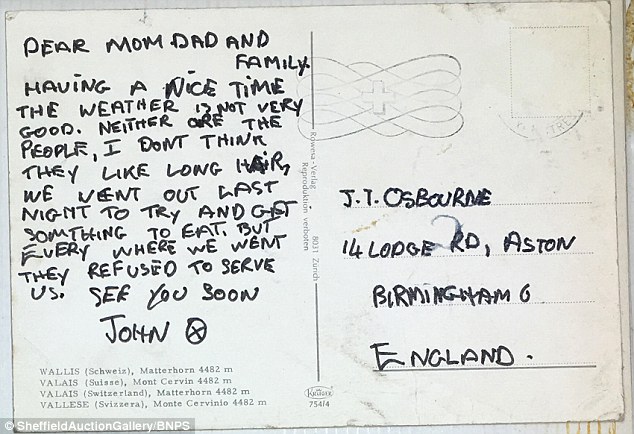 DEAR MOM DAD AND
FAMILY
HAVING A NICE TIME
THE WEATHER IS NOT VERY
GOOD. NEITHER ARE THE
PEOPLE, I DONT THINK
THEY LIKE LONG HAIR,
WE WENT OUT LAST
NIGHT TO TRY AND GET
SOMTHING TO EAT. BUT
EVERY WHERE WE WENT
THEY REFUSED TO SERVE
US. SEE YOU SOON
JOHN
WALLIS (Schweiz), Matterhorn 4482 m
VALAIS (Suisse), Mont Cervin 4482 m
VALAIS (Switzerland), Matterhorn 4482 m
VALLESE (Svizzera), Monte Cervinio 4482 m
Rowesa-Verlag 8031 Zürich
Reproduktion verboten
J.T. OSBOURNE
14 LODGE RD, ASTON
BIRMINGHAM 6
ENGLAND.
KRÜGER
754/4
© SheffieldAuctionGallery/BNPS